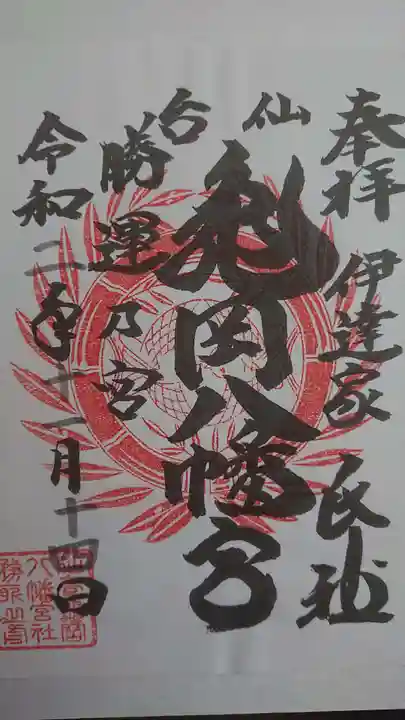 奉拝 伊達家 氏神
仙台
亀岡八幡宮
勝運乃宮
令和二年十一月十四日
八幡宮社